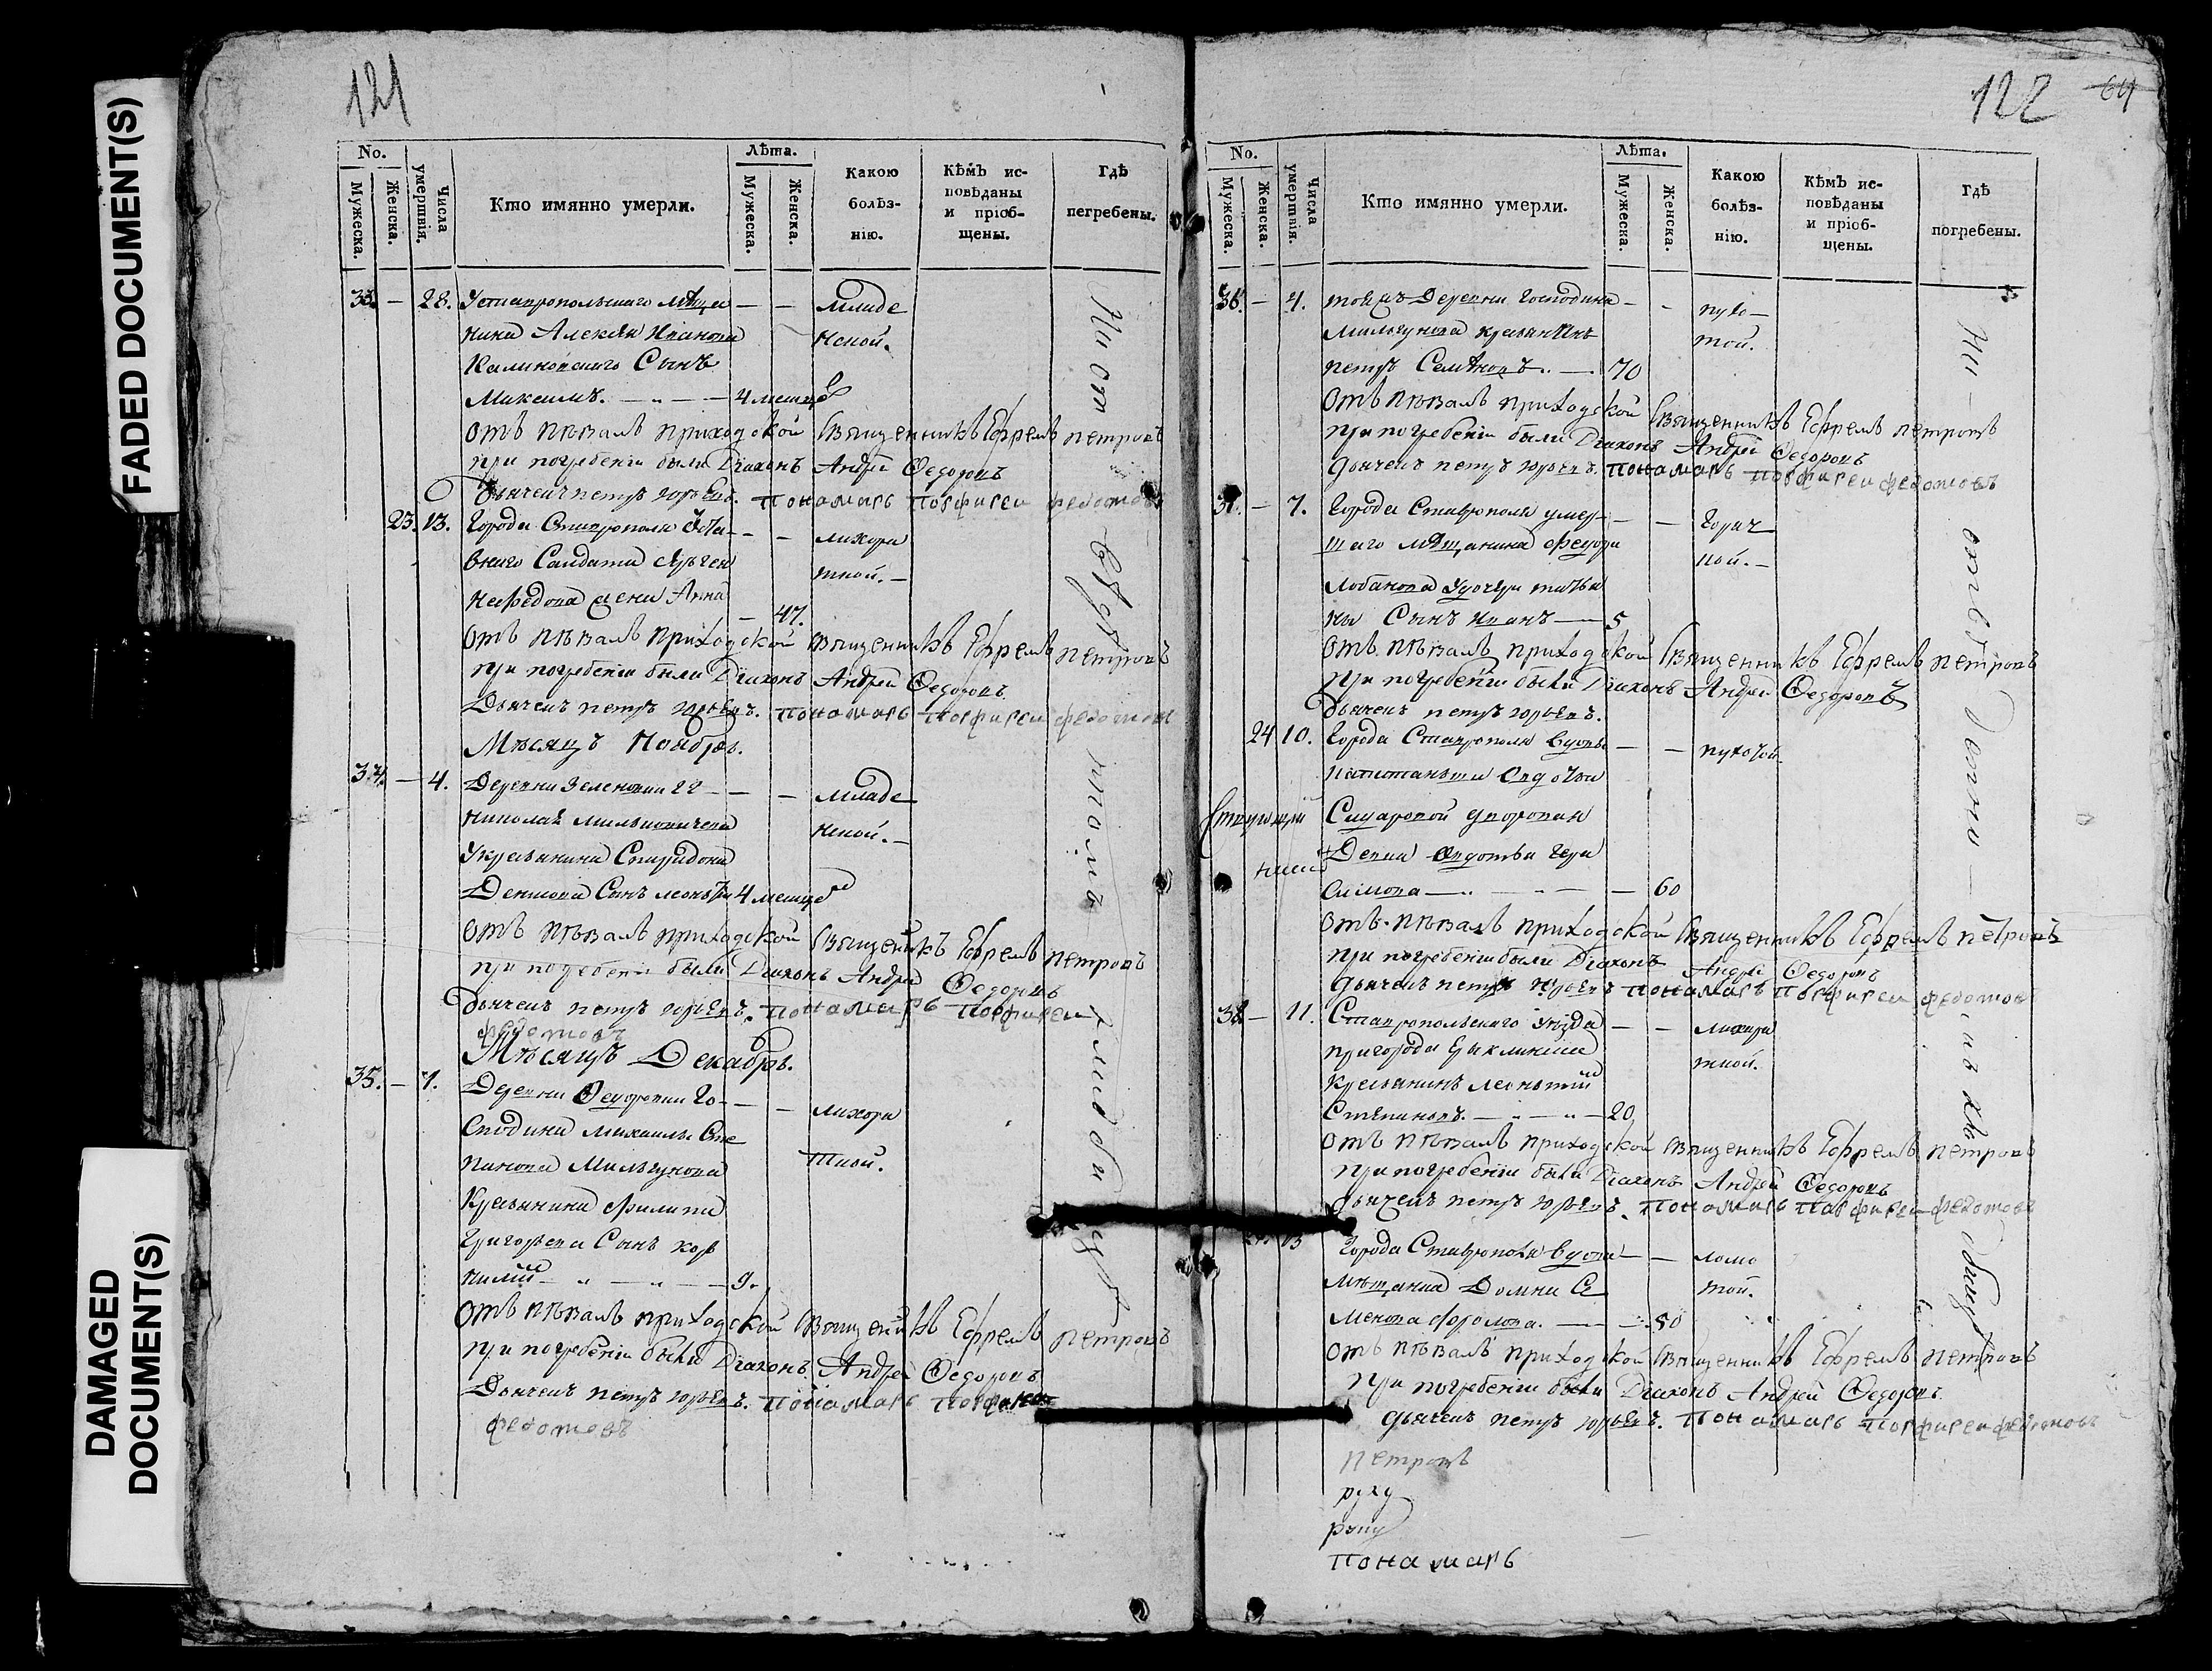 FADED DOCUMENT(S)
DAMAGED
DOCUMENT(S)
121
No.
Мужеска.
Женска.
Числа умертвія.
Кто имянно умерли.
Лѣта.
Мужеска.
Женска.
Какою болѣз-
нію.
Кѣмъ ис-
повѣданы
и пріоб-
щены.
Гдѣ
пегребены.
33. — 28. Уставропольскаго мѣща — — младе
нина Алексѣя Иванова нской.
Калиновскаго Сынъ
Максимъ. — 4 месяц
отъ пѣвалъ приходской Священникъ Ефремъ петровъ
при погребеніи были Діаконъ Андрей Ѳедоровъ
Дьячекъ петръ юрьевъ. понамарь порфиреи федотовъ
23. 13. Города Ставрополя — — лихора
Салдата тной. —
Нефедова жена Анна
— 47.
отъ пѣвалъ приходской Священникъ Ефремъ петровъ
при погребеніи были Діаконъ Андрей Ѳедоровъ
Дьячекъ петръ юрьевъ. понамарь порфиреи федотовъ
Мѣсяцъ Ноябрь.
34. — 4. Деревни Зеленовки — — младе
николая нской. —
Укрестьянина Спиридона
Сынъ 4 месяц
отъ пѣвалъ приходской Священникъ Ефремъ петровъ
при погребени были Діаконъ Андрей Ѳедоровъ
Дьячекъ петръ юрьевъ. понамарь порфиреи
федотовъ
Мѣсяцъ Декабрь.
35. — 1. Деревни Ѳедоровки Го- — — лихора
сподина Михаилы Сте тной.
панова Мильгунова
Крестьянина Филипа
Григорьева Сынъ кор
нилій — 9.
отъ пѣвалъ приходской Священикъ Ефремъ петровъ
при погребеніи были Діаконъ Андрей Ѳедоровъ
Дьячекъ петръ юрьевъ. понамарь порфиреи
федотовъ
122 64
No.
Мужеска.
Женска.
Числа умертвія.
Кто имянно умерли.
Лѣта.
Мужеска.
Женска.
Какою
болѣз-
нію.
Кѣмъ ис-
повѣданы
и пріоб-
щены.
Гдѣ
погребены.
36. — 4. тойжъ Деревни Господина — —
Мильгунова крестьянинъ той.
петръ Семѣновъ. — 70
отъ пѣвалъ приходской Священникъ Ефремъ петровъ
при погребеніи были Діаконъ Андрей Ѳедоровъ
дьячекъ петръ юрьевъ. понамарь порфиреи федотовъ
37. — 7. Города Ставрополя умер- — — Горяч
шаго мѣщанина Федора кой. —
Лобанова Удочери татья
ны Сынъ иванъ — 5
отъ пѣвалъ приходской Священникъ Ефремъ петровъ
при погребеніи были Діаконъ Андрей Ѳедоровъ
Дьячекъ петръ юрьевъ.
24 10. Города Ставрополя вдовы — —
капитанши Авдотьи
Сиуаровой дворовая
Девка Авдотья Гера
симова — 60
отъ пѣвалъ приходской Священникъ Ефремъ петровъ
при погребеніи были Діаконъ Андрей Ѳедоровъ
дьячекъ петръ юрьевъ понамарь порфиреи федотов
38 — 11. Ставропольскаго уѣзда — — лихора
пригорода тной.
крестьянинъ леонътій
Степановъ. — 20
отъ пѣвалъ приходской Священникъ Ефремъ петровъ
при погребеніи были Діаконъ Андрей Ѳедоровъ
дьячекъ петръ юрьевъ. понамарь порфиреи федотовъ
Города Ставрополя вдова — — ломо
мѣщанка Домна Се той.
менова Фролова. — 50
отъ пѣвалъ приходской Священникъ Ефремъ петровъ
при погребеніи были Діаконъ Андрей Ѳедоровъ
дьячекъ петръ юрьевъ. понамарь порфиреи федотовъ
петровъ
руку
понамарь